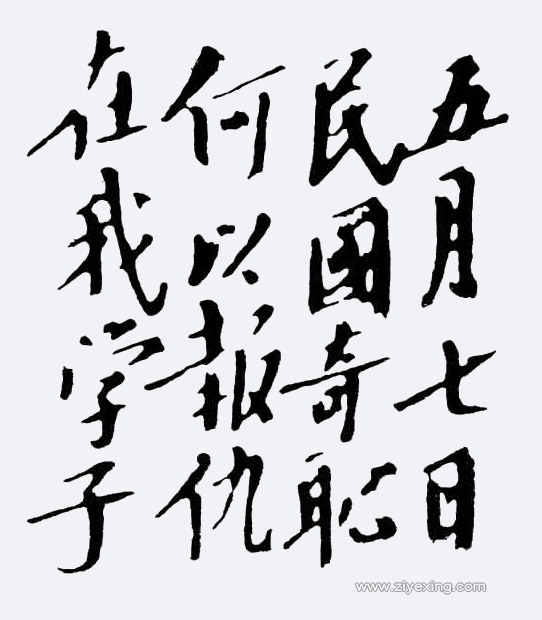 五月七日
民國奇恥
何以报仇
在我学子
www.ziyexing.com